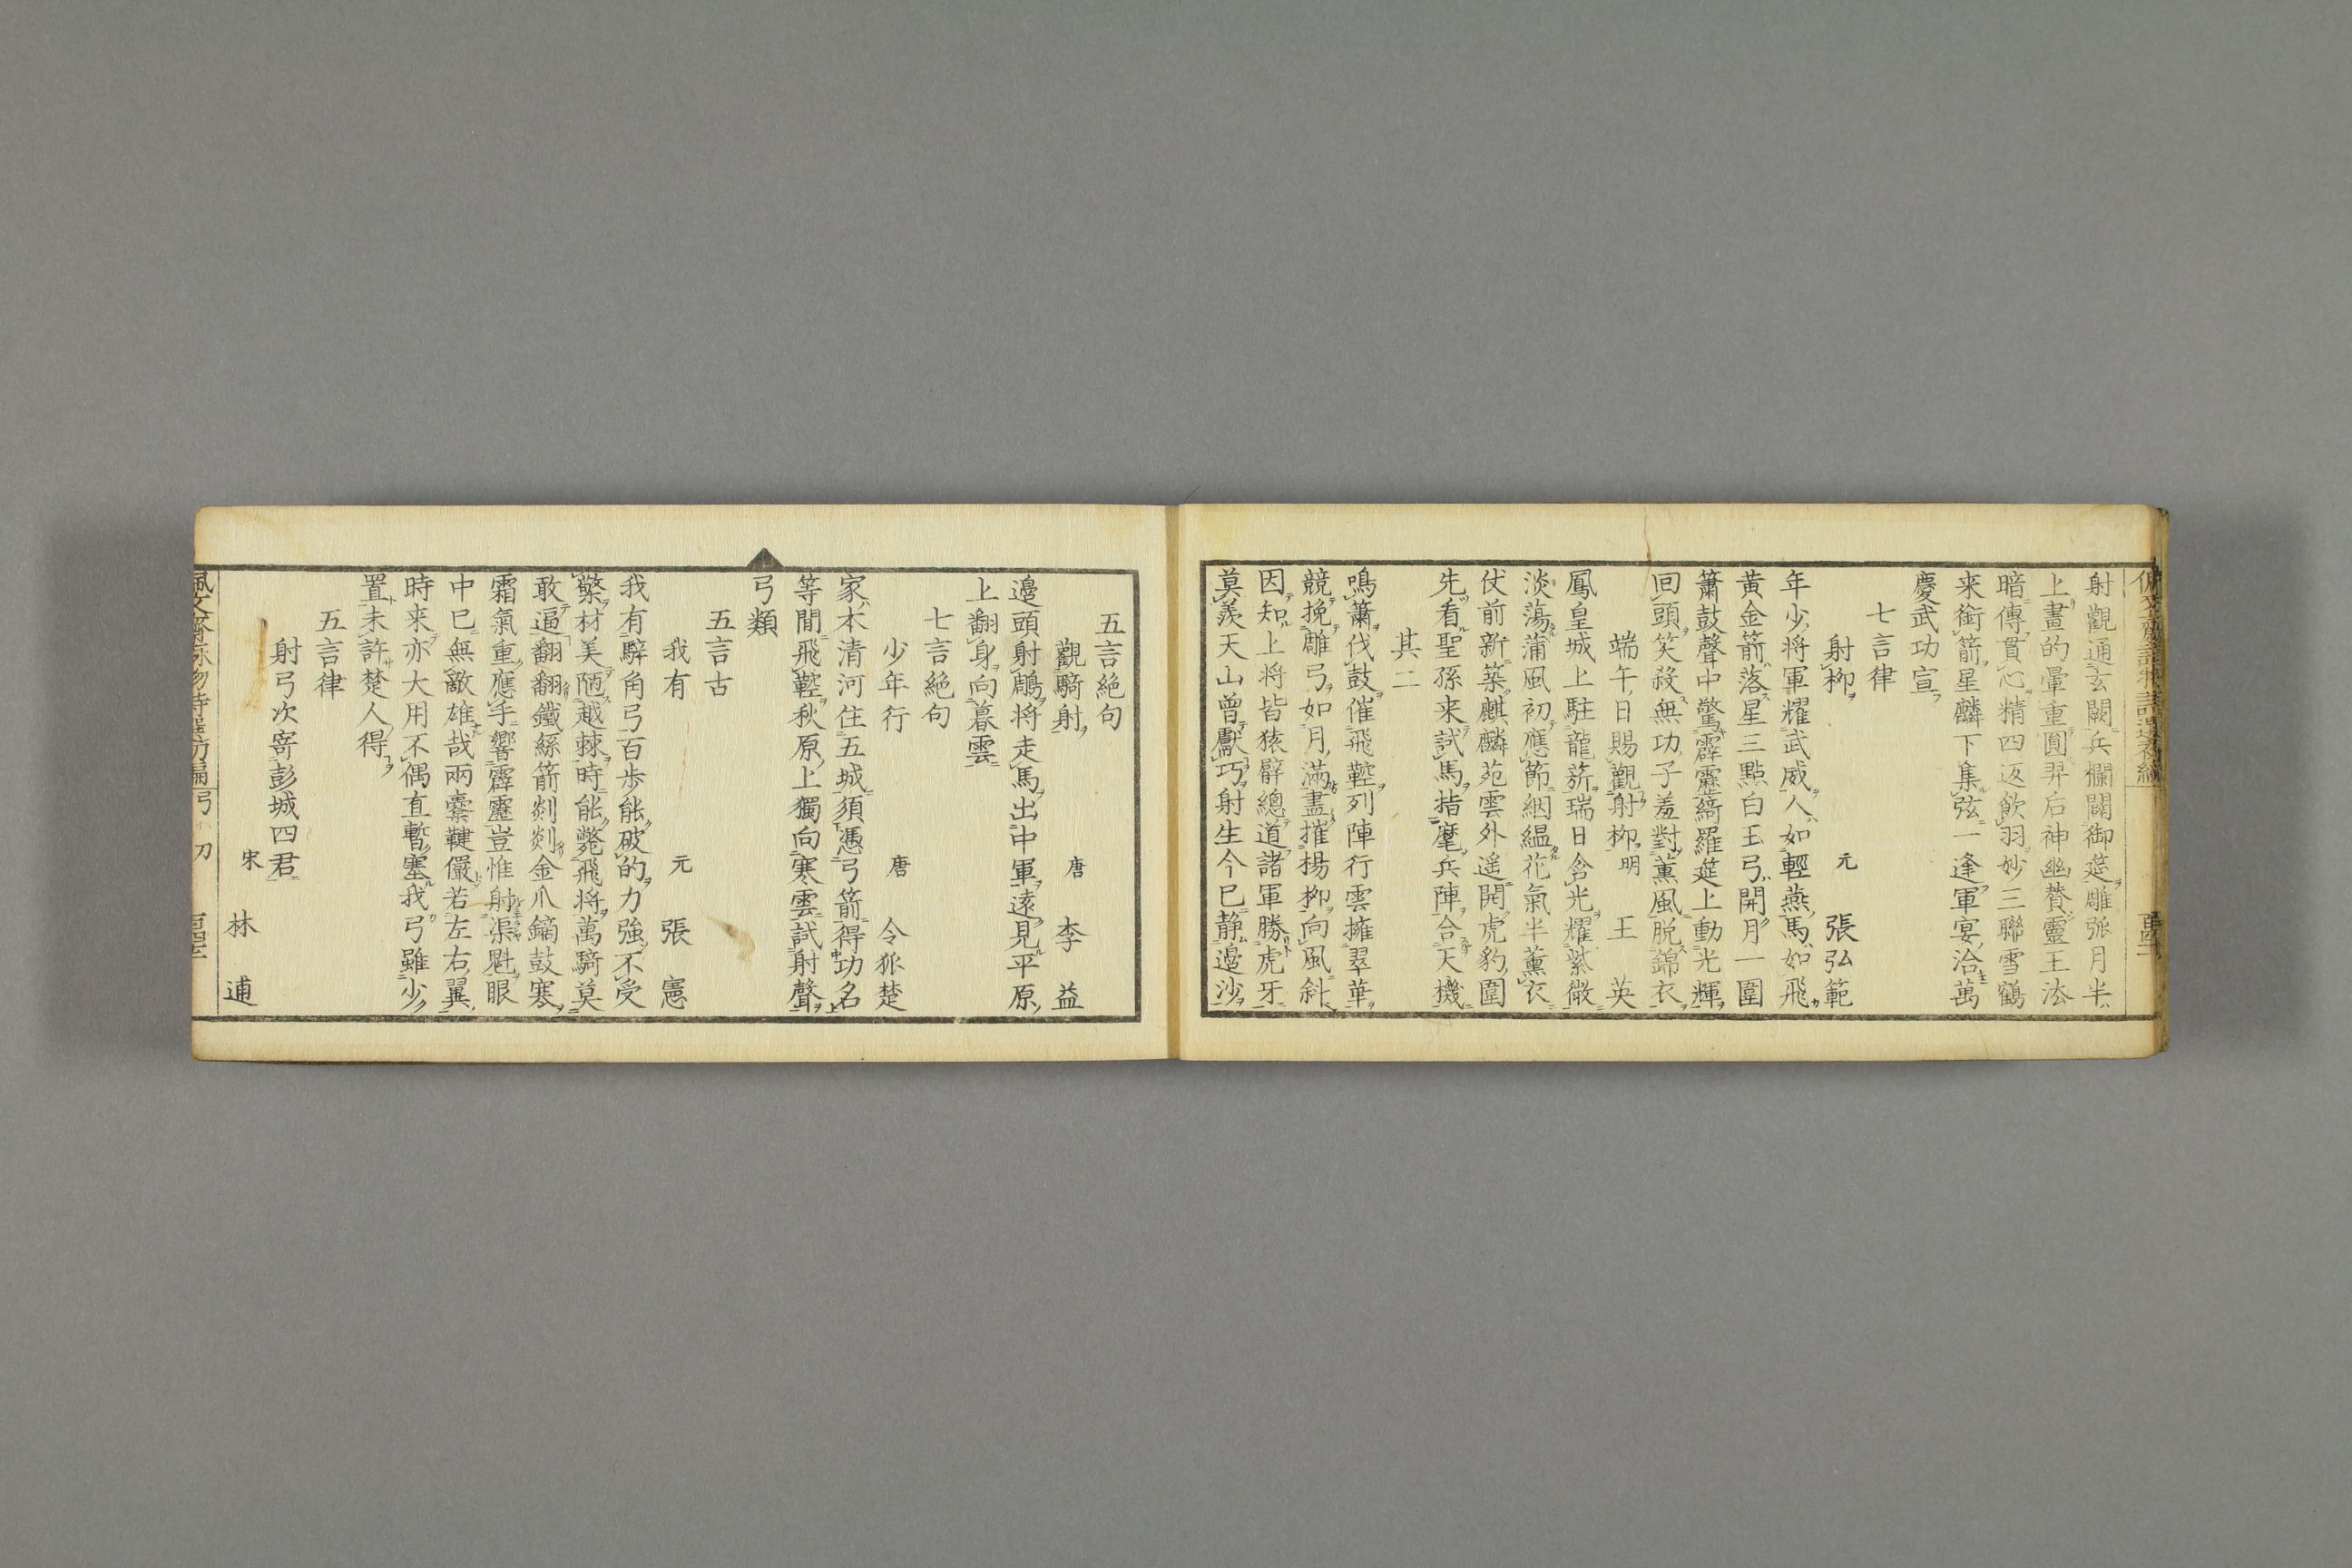 射觀通玄闕兵欄闢御筵雕弧月半
上畫的暈重圓羿后神幽贊靈王法
暗傳貫心精四返飲羽妙三聯雪鶴
来銜箭星麟下集弦一逢軍宴洽萬
慶武功宣
七言律
射柳 元 張弘範
年少将軍耀武威人如輕燕馬如飛
黄金箭落星三點白玉弓開月一圍
簫鼓聲中驚霹靂綺羅筵上動光輝
回頭笑殺無功子羞對薫風脱錦衣
端午日賜觀射柳 明 王英
鳳皇城上駐龍旂瑞日含光耀紫微
淡蕩蒲風初應節絪縕花氣半薫衣
仗前新築麒麟苑雲外遥開虎豹圍
先看聖孫来試馬指麾兵陣合天機
其二
鳴簫伐鼓催飛鞚列陣行雲擁翠華
競挽雕弓如月滿盡摧楊柳向風斜
因知上将皆猿臂總道諸軍勝虎牙
莫羨天山曾獻巧射生今已静邉沙
五言絶句
觀騎射 唐 李益
邉頭射鵰将走馬出中軍遠見平原
上翻身向暮雲
七言絶句
少年行 唐 令狐楚
家本清河住五城須憑弓箭得功名
等閒飛鞚秋原上獨向寒雲試射聲
弓類
五言古
我有 元 張憲
我有騂角弓百歩能破的力強不受
檠材美陋越棘時能斃飛将萬騎莫
敢逼翻翻鐵絲箭剡剡金爪鏑鼓寒
霜氣重應手響霹靂豈惟射渠魁眼
中已無敵雄哉兩櫜鞬儼若左右翼
時来亦大用不偶直暫塞我弓雖少
置未許楚人得
五言律
射弓次寄彭城四君
宋 林逋
佩文齋詠物詩選初編 弓 刀